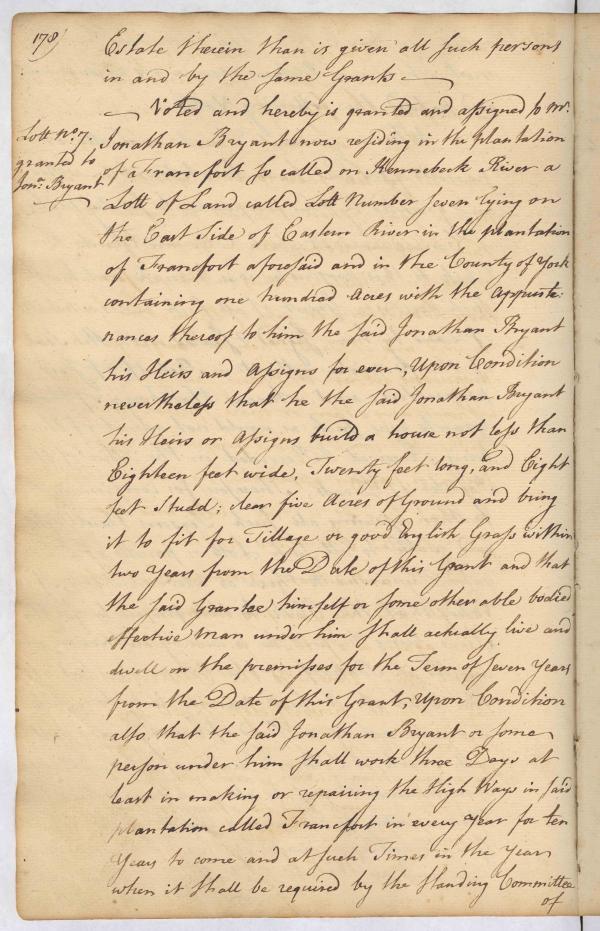 178)
Estate therein than is given all such persons
in and by the same Grants
Voted and hereby is granted and assigned to Mr.
Lott No. 7.
granted to
Jona. Bryant
Jonathan Bryant now residing in the plantation
of Francfort so called on Kennebeck River a
Lott of Land called Lott Number seven lying on
the East Side of Eastern River in the plantation
of Francfort aforesaid and in the County of York
containing one hundred Acres with the Appurte-
nances thereof to him the said Jonathan Bryant
his Heirs and Assigns for ever, Upon Condition
nevertheless that he the said Jonathan Bryant
his Heirs or Assigns build a house not less than
Eighteen feet wide, Twenty feet long, and Eight
feet Studd; clear five Acres of Ground and bring
it to fit for Tillage or good English Grass within
two Years from the Date of this Grant and that
the said Grantee himself or some other able bodied
effective man under him shall actually live and
dwell on the premisses for the Term of seven Years
from the Date of this Grant, Upon Condition
also that the said Jonathan Bryant or some
person under him shall work three Days at
least in making or repairing the High Ways in said
plantation called Francfort in every Year for ten
Years to come and at such Times in the Year
when it shall be required by the Standing Committee
of